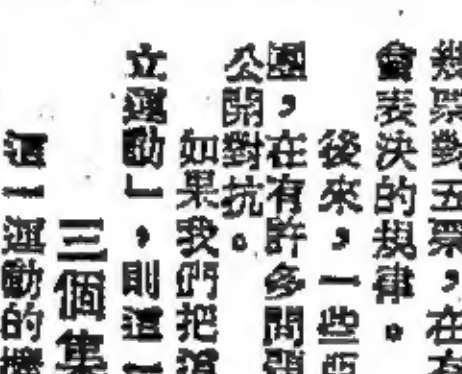 幾票對五票，在有
會表決的規律。
後來，一些亞
團，在有許多問題
公開對抗。
如果我們把這
立運動」，則這一
三個集
這一運動的機